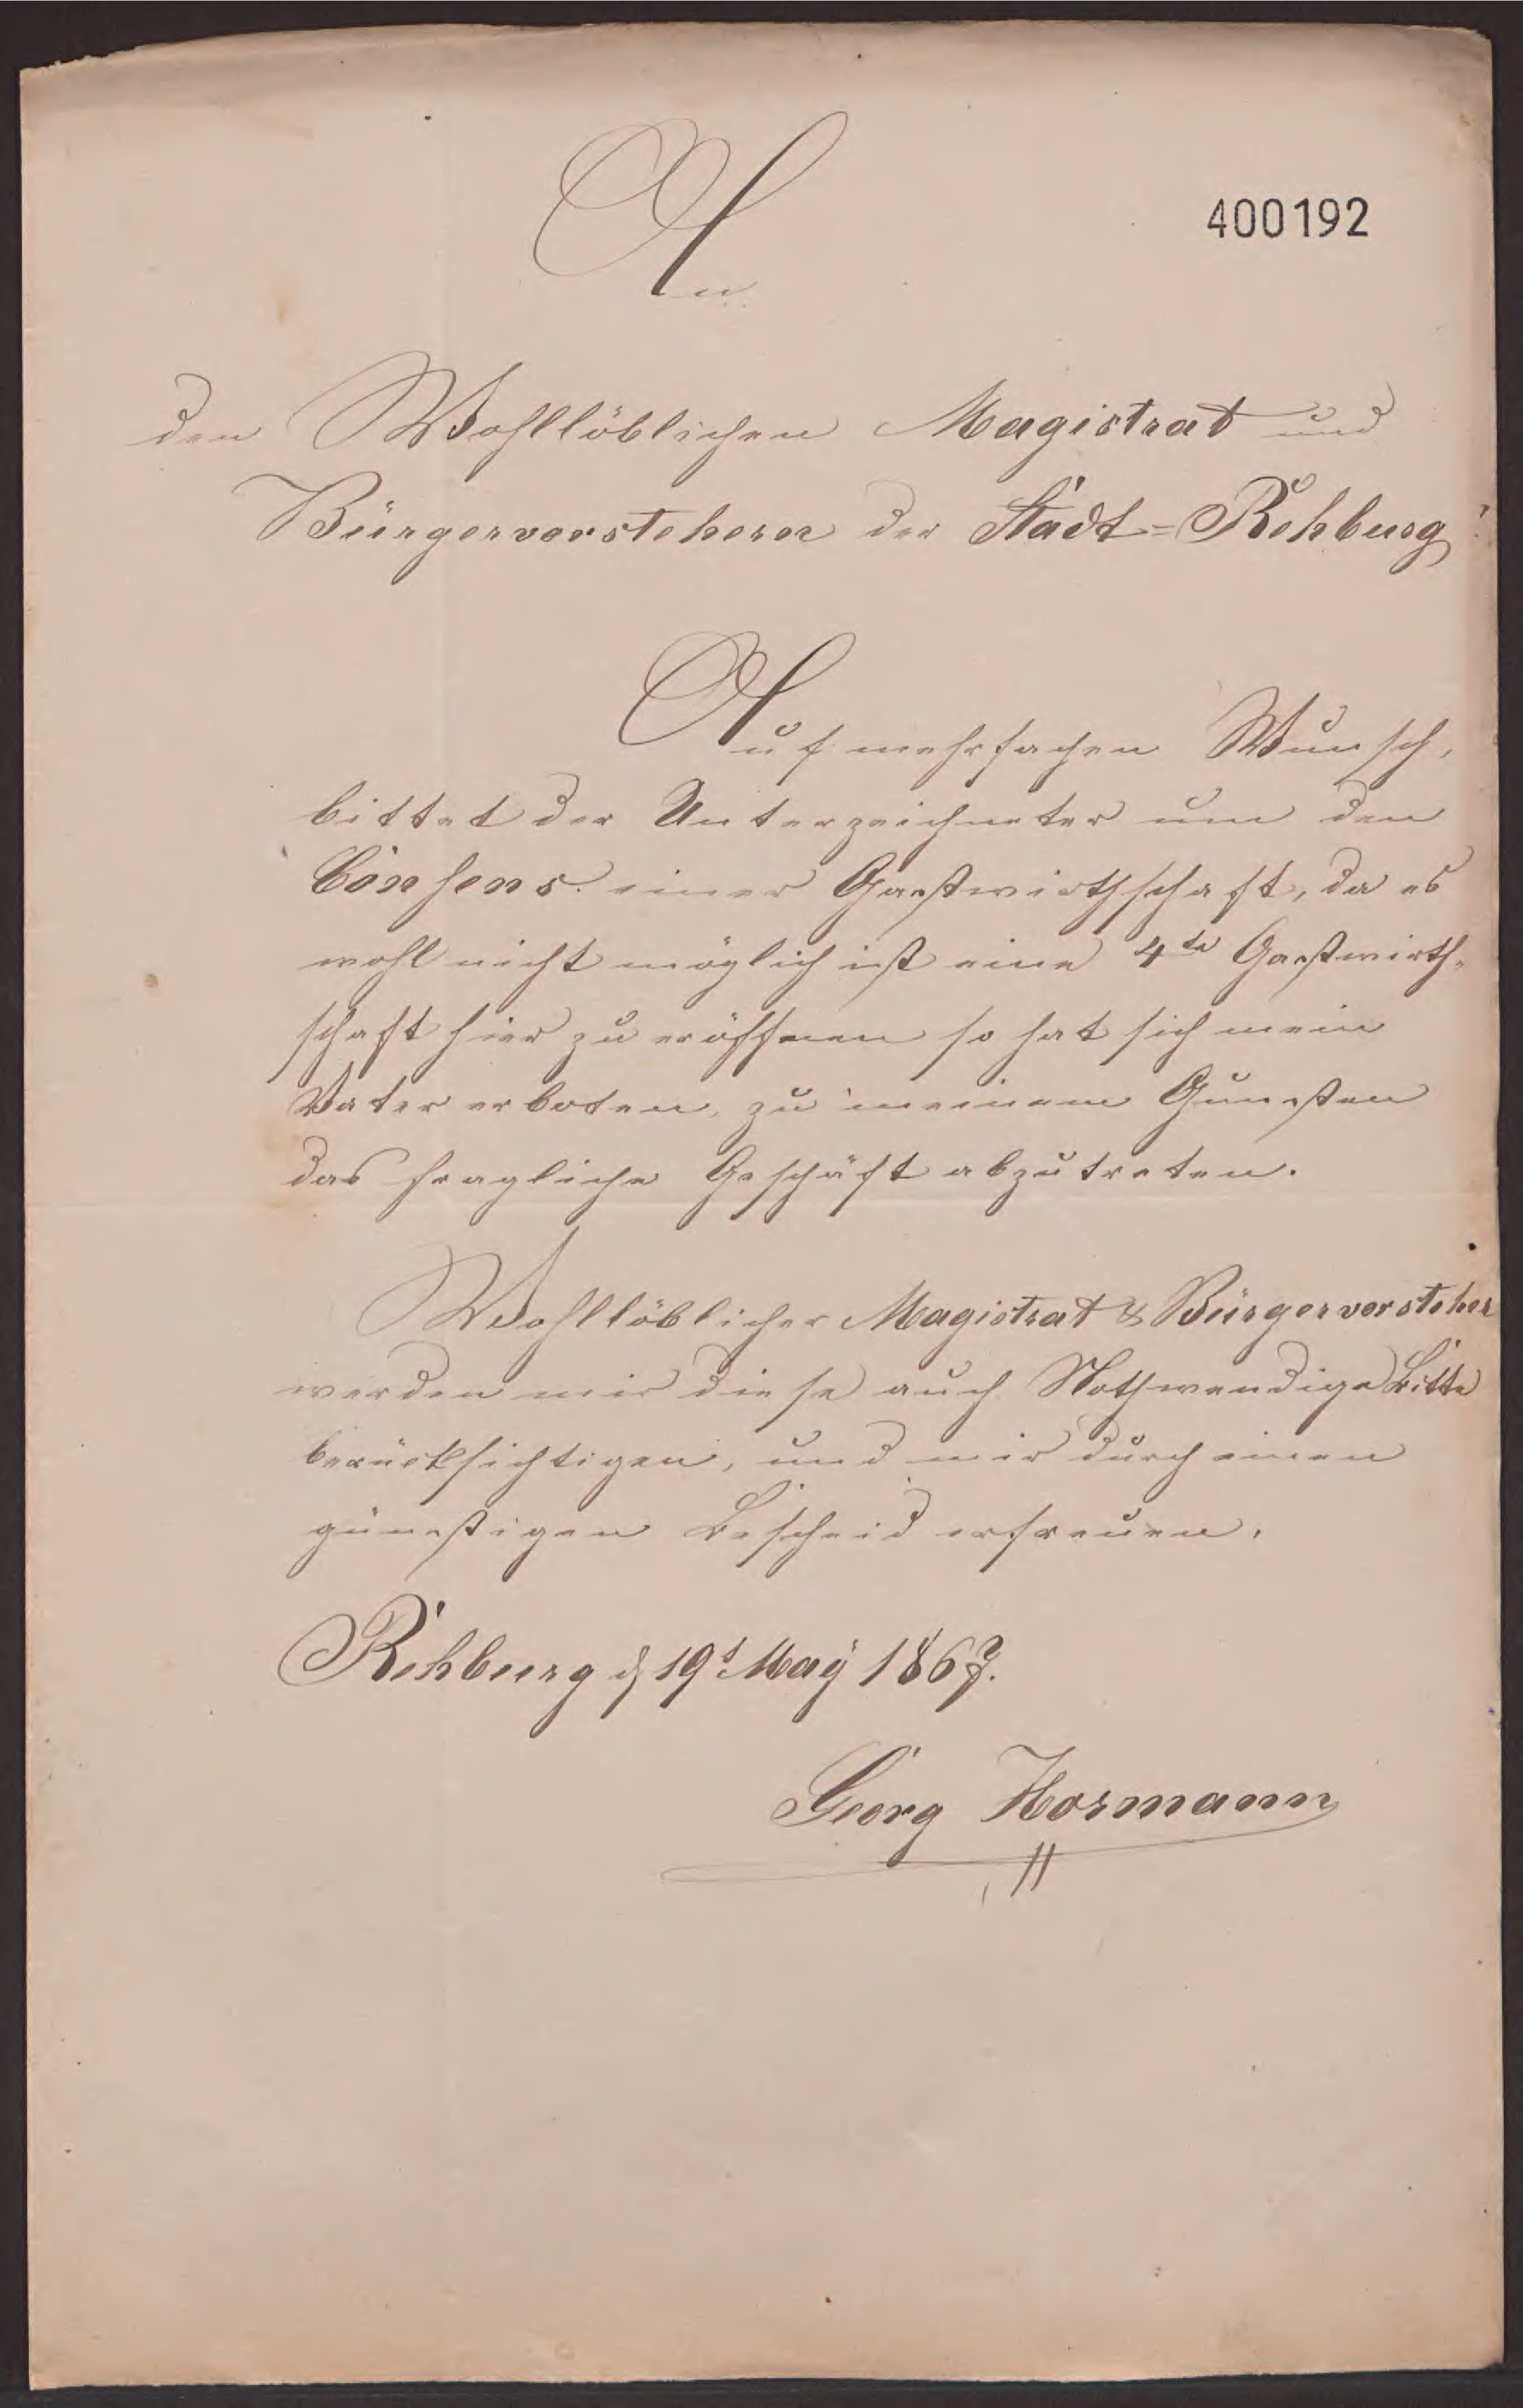 An
400192
den Wohllöblichen Magistrat und
Bürgervorstehern der Stadt=Rehburg!
Auf mehrfachen Wunsch,
bittet der Unterzeichneter um den
Consens. einer Gastwirthschaft, da es
wohl nicht möglich ist eine 4te Gastwirth-
schaft hier zu eröffnen so hat sich mein
Vater erboten, zu meinem Gunsten
das fragliche Geschäft abzutreten.
Wohllöblicher Magistrat & Bürgervorsteher
werden mir diese auch Nothwendige Bitte
berücksichtigen, und mir durch einen
günstigen Bescheid erfreuen.
Rehburg d 19t May 1867.
Georg Hormann